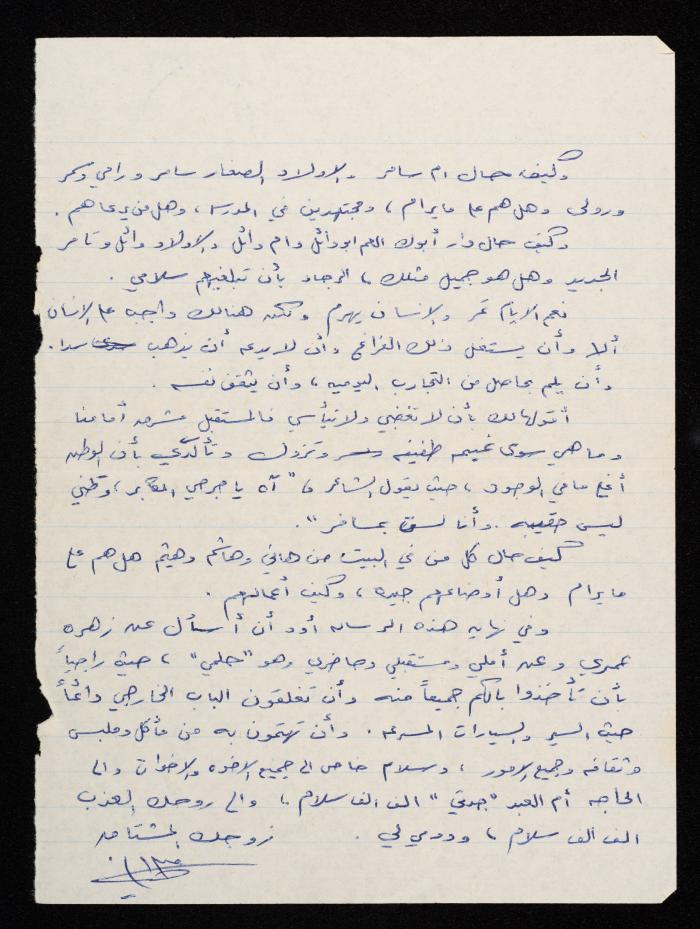 وكيف حال ام سامر والاولاد الصغار سامر ورامي وسمر
ورولى وهل هم على مايرام ، ومجتهدين في المدرسه ، وهل من يرعاهم .
وكيف حال دار أبوك العم ابووائل وام وائل والاولاد وائل وتامر
الجديد وهل هو جميل مثلك ، الرجاء بأن تبلغيهم سلامي .
نعم الايام تمر والإنسان يهرم ولكن هنالك واجب على الإنسان
ألا وأن يستغل ذلك الفراغ وأن لا يدعه أن يذهب سدا .
وأن يلم بحاصل من التجارب اليوميه ، وأن يثقف نفسه .
أقولها لك بأن لا تغضبي ولا تيأسي فالمستقبل مشرق أمامنا
وما هي سوى غيمه طفيفه وتزول وتأكدي بأن الوطن
أغلى مافي الوجود ، حيث يقول الشاعر " آه يا جرحي المكابر ، وطني
ليس حقيبه . وأنا لست بمسافر " .
كيف حال كل من في البيت من هاني وهاشم وهيثم هل هم على
مايرام وهل أوضاعهم جيده ، وكيف أعمالهم .
وفي نهايه هذه الرساله أود أن أسأل عن زهره
عمري وعن أملي ومستقبلي وحاضري وهو "حلمي" ، حيث راجياً
بأن تأخذوا بالكم جميعاً منه وأن تغلقون الباب الخارجي دائماً
حيث السير والسيارات المسرعه . وأن تهتمون به من مأكل وملبس
وثقافه وجميع الامور ، وسلام خاص الى جميع الاخوه والاخوات والى
الحاجه أم العبد "جدتي" الف الف سلام ، والى روحك العذب
الف الف سلام ، ودومي لي . زوجك المشتاق